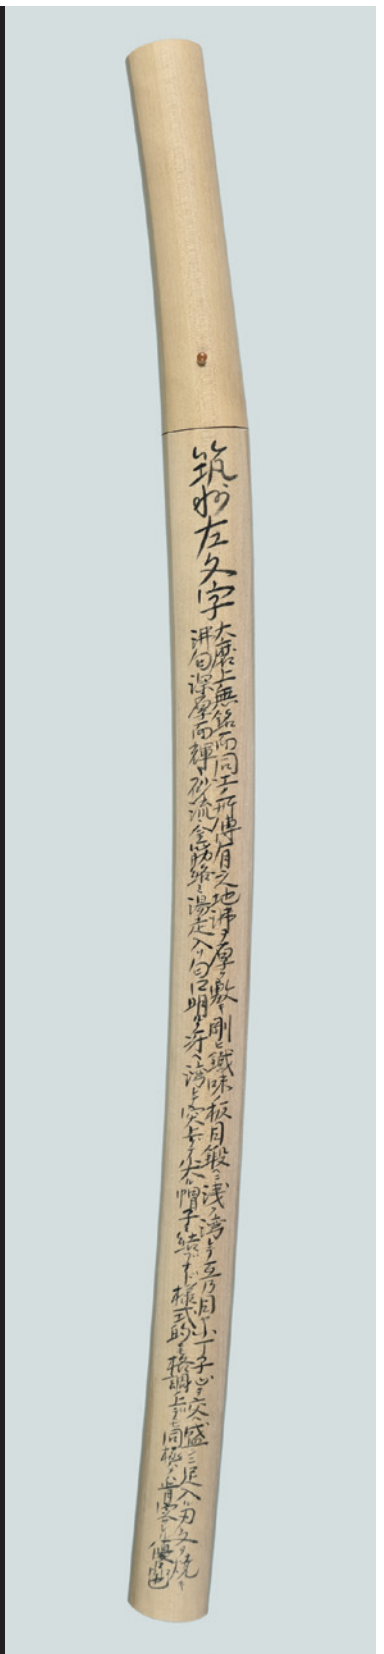 筑州左文字
大磨上無銘而同工ノ所傳有之地沸ヲ厚ク敷キ剛ヒ鐵味ノ板目鍛ニ浅ク湾レ互乃目小丁子ヲ交ヘ盛ニ足入ル刃文ヲ焼キ
沸匂深厚而輝キ砂流金筋絡ミ湯走入リ匂口明ルク冴ヘ湾レ突上ゲ尖ル帽子ヲ結ブナド様式的ニモ格調上ニモ同極メガ首肯サル優